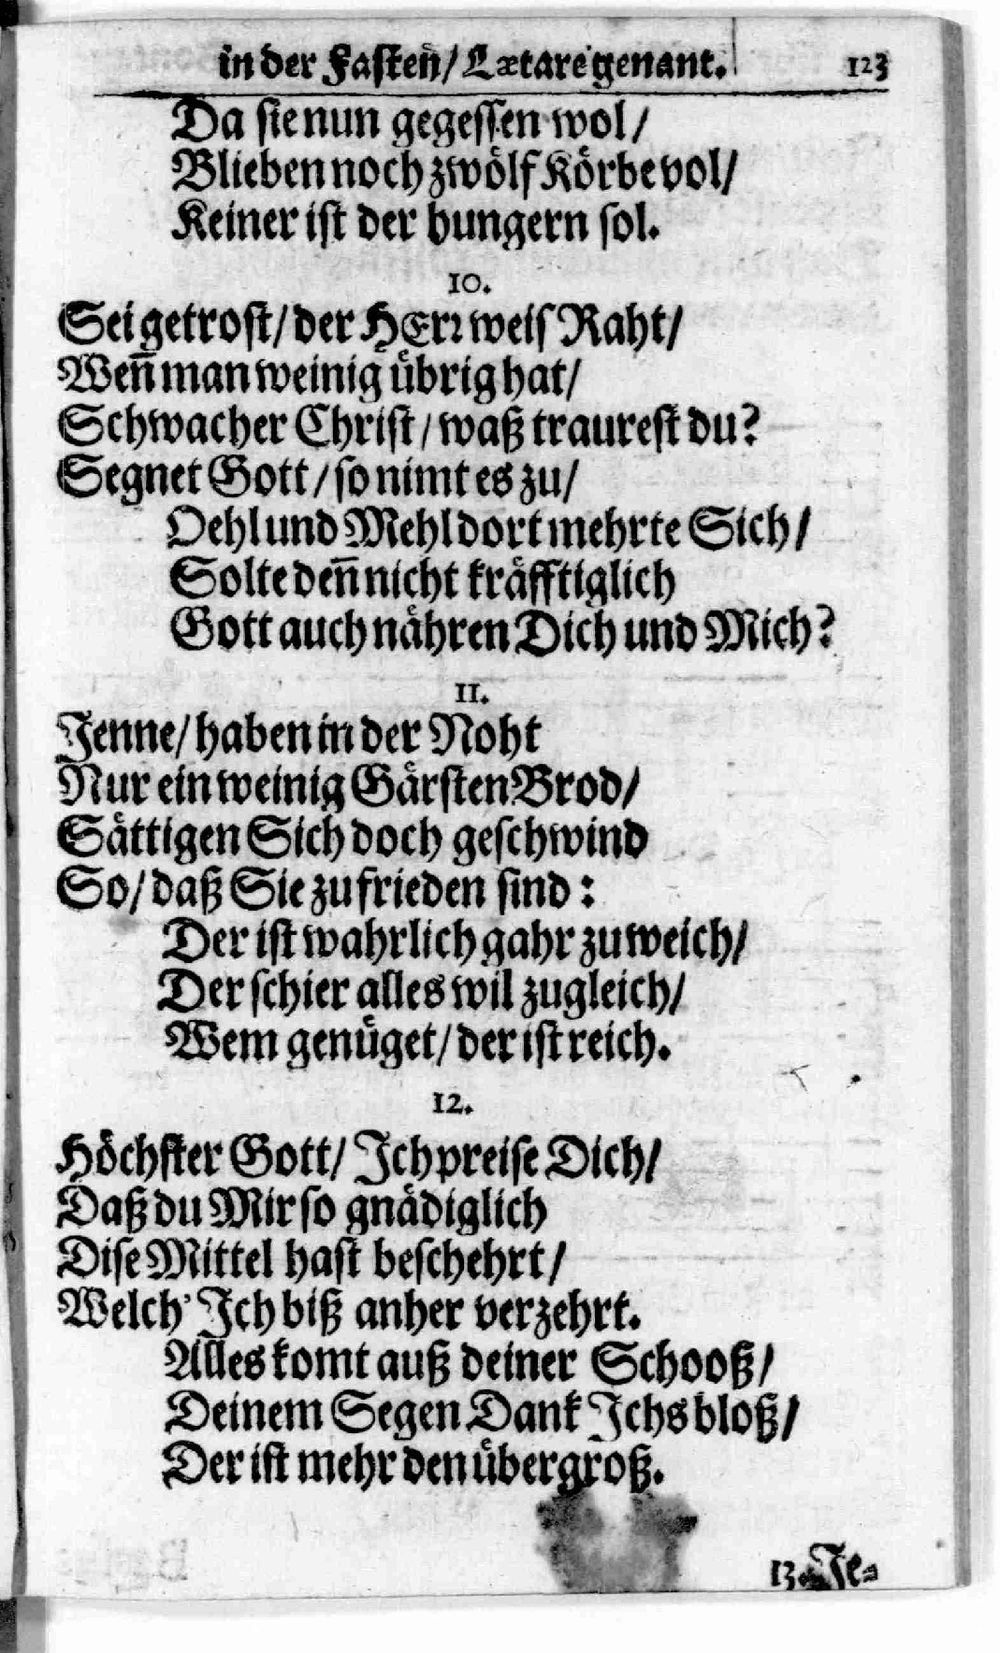 in der Fasten/ Lætare genant. 123
Da sie nun gegessen wol/
Blieben noch zwölf Körbe vol/
Keiner ist der hungern sol.
10.
Sei getrost/ der HErr weis Raht/
Weñ man weinig übrig hat/
Schwacher Christ/ waß traurest du?
Segnet Gott/ so nimt es zu/
Oehl und Mehl dort mehrte Sich/
Solte deñ nicht kräfftiglich
Gott auch nähren Dich und Mich?
11.
Jenne/ haben in der Noht
Nur ein weinig Gärsten Brod/
Sättigen Sich doch geschwind
So/ daß Sie zu frieden sind:
Der ist wahrlich gahr zu weich/
Der schier alles wil zugleich/
Wem genüget/ der ist reich.
12.
Höchster Gott/ Jch preise Dich/
Daß du Mir so gnädiglich
Dise Mittel hast beschehrt/
Welch' Jch biß anher verzehrt.
Alles komt auß deiner Schooß/
Deinem Segen Dank Jchs bloß/
Der ist mehr den übergroß.
13. Je-